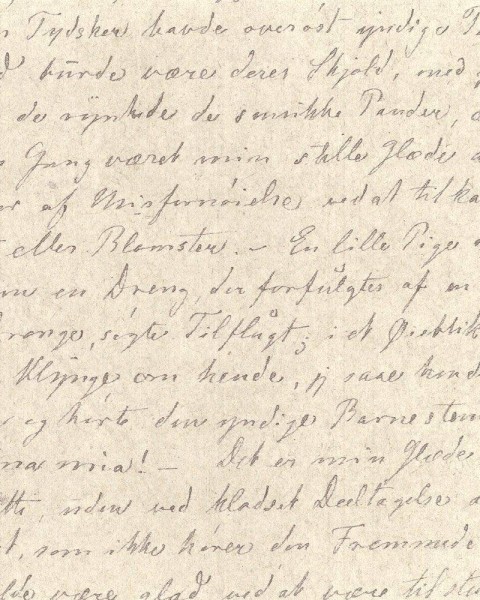 Tydsker havde overöst yndige
burde være deres Skjold, med
de rynkede de smukke Pander,
Gang været min stille Glæde
af Misfornöielse ved at
eller Blomster. – En lille Pige
en Dreng, der forfulgtes af en
sögte Tilflugt; i et Öieblik
Klynge om hende, jeg saae
og hörte den yndige
mia! – Det er min Glæde
uden ved kladsk Deeltagelse
som ikke hörer den Fremmede
være glad ved at være